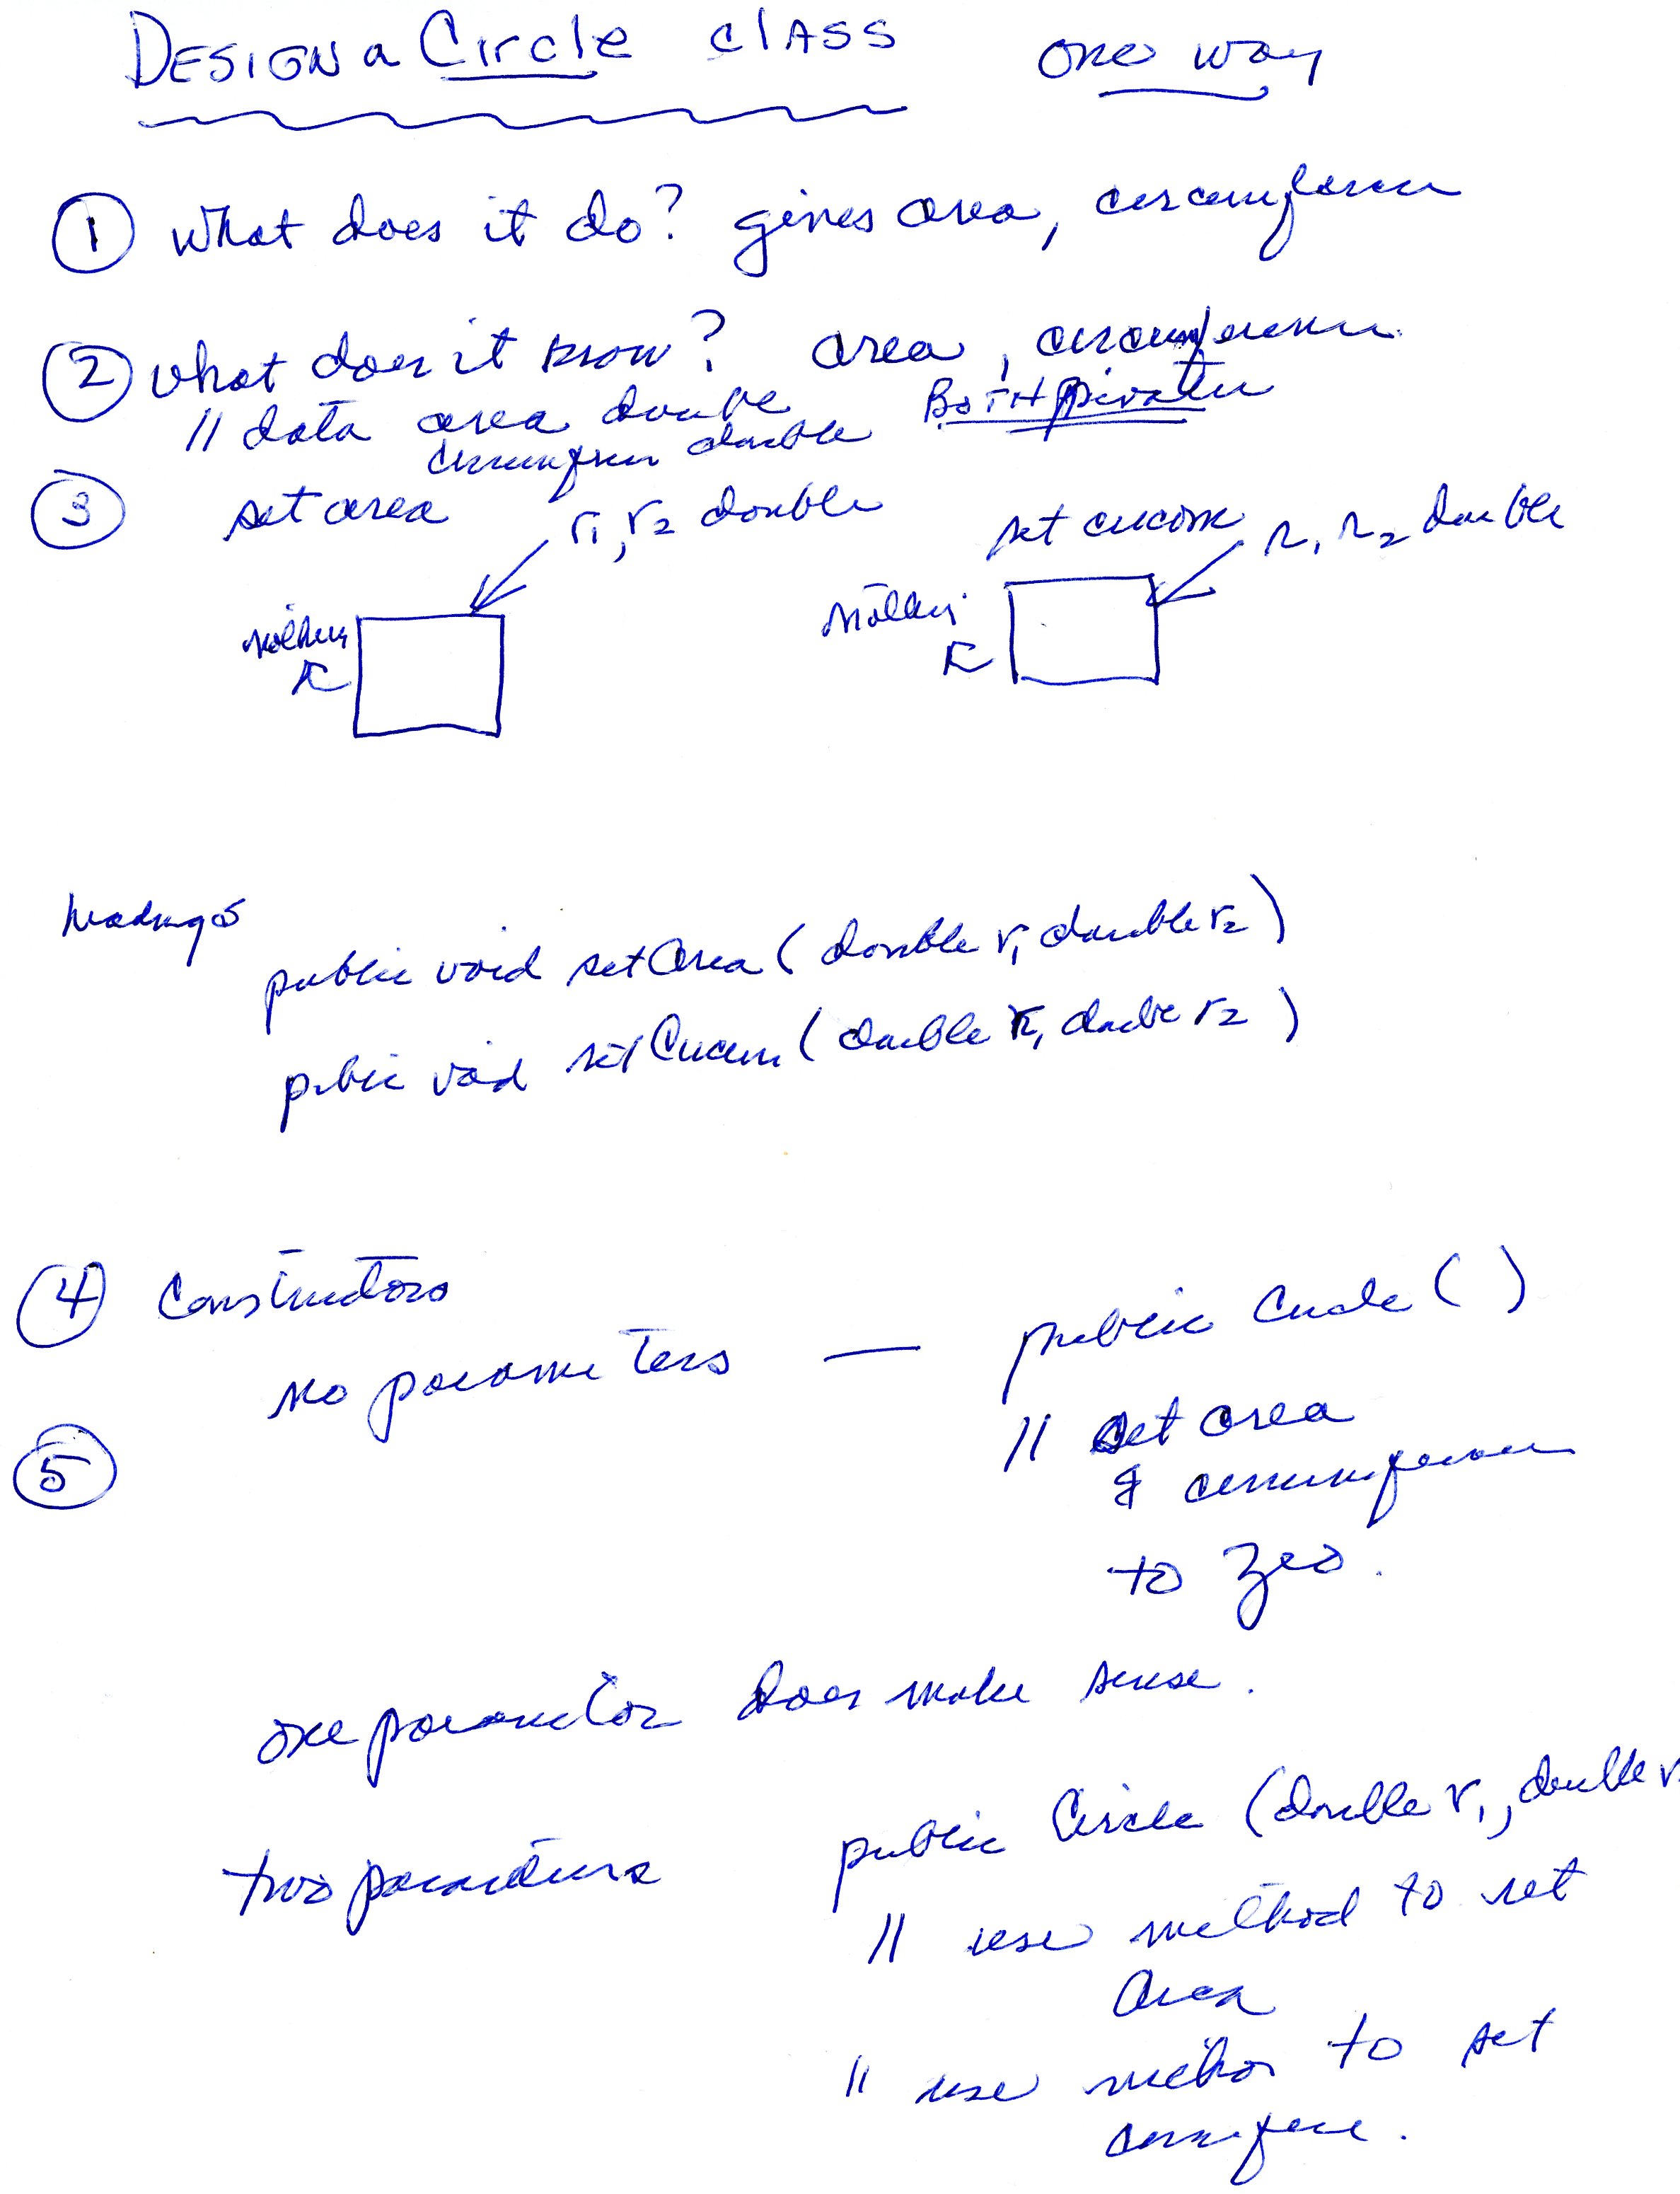 DESIGN a Circle class one way
① What does it do? gives area, circumference
② What does it know? area, circumference
// data area double Both Private
circumference double
③ set area r1, r2 double set circum r1, r2 double
nothing nothing
headings
public void setArea (double r1, double r2)
public void setCircum (double r1, double r2)
④ Constructors
no parameters — public Circle ( )
⑤
// set area
& circumference
to zero.
one parameter does make sense.
two parameters public Circle (double r1, double r
// use method to set
area
// use method to set
circumference.